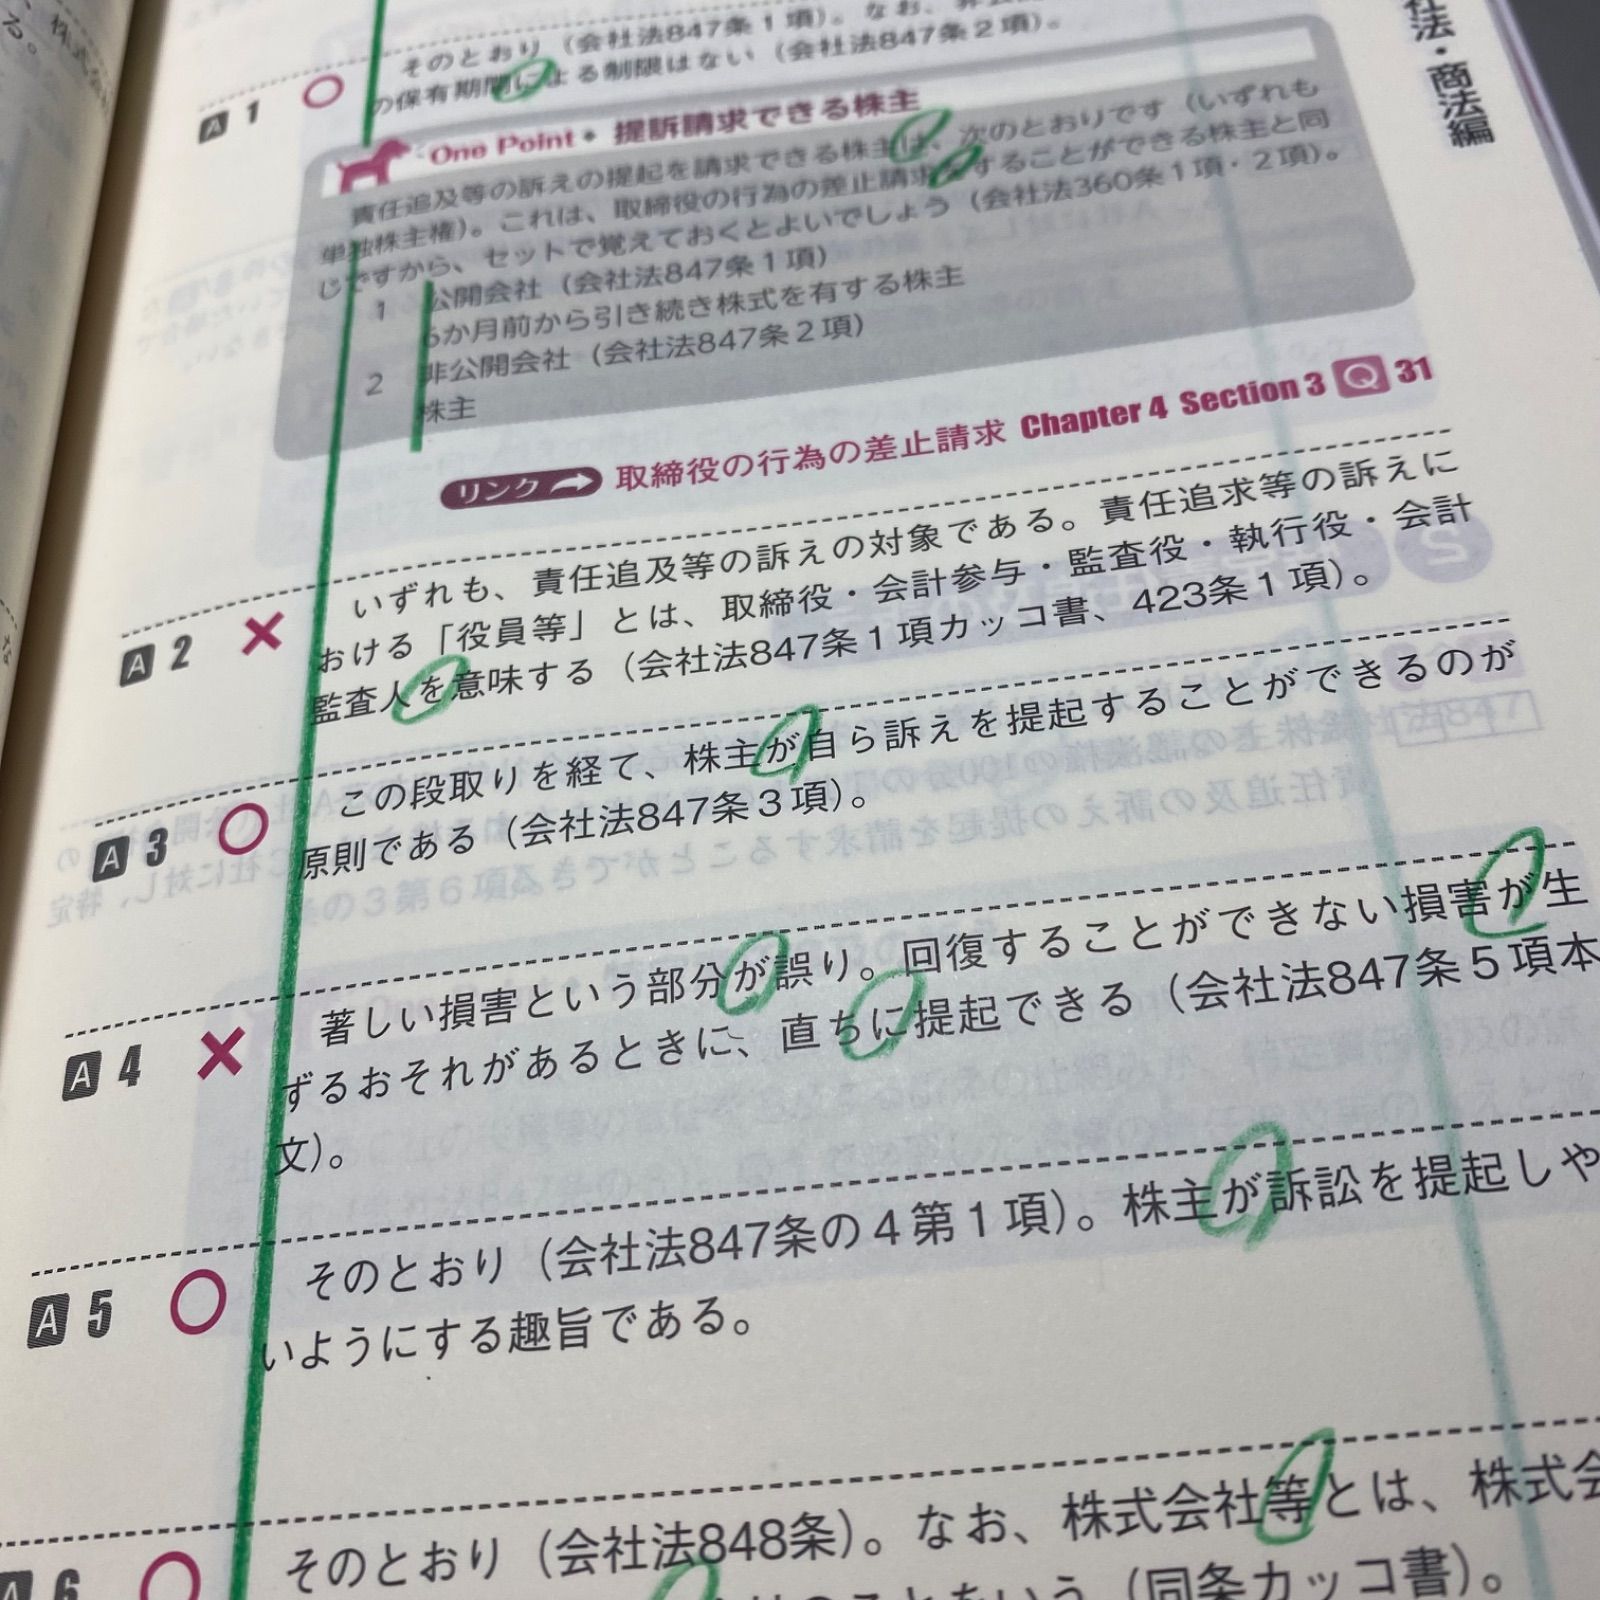 社法・商法編
る。
株式会
A 1 ○ そのとおり（会社法847条1項）。なお、
の保有期間による制限はない（会社法847条2項）。
One Point・提訴請求できる株主
責任追及等の訴えの提起を請求できる株主は、次のとおりです（いずれも
単独株主権）。これは、取締役の行為の差止請求をすることができる株主と同
じですから、セットで覚えておくとよいでしょう（会社法360条1項・2項）。
1 公開会社（会社法847条1項）
6か月前から引き続き株式を有する株主
2 非公開会社（会社法847条2項）
株主
リンク 取締役の行為の差止請求 Chapter 4 Section 3 Q 31
A 2 × いずれも、責任追及等の訴えの対象である。責任追求等の訴えに
おける「役員等」とは、取締役・会計参与・監査役・執行役・会計
監査人を意味する（会社法847条1項カッコ書、423条1項）。
A 3 ○ この段取りを経て、株主が自ら訴えを提起することができるのが
原則である（会社法847条3項）。
A 4 × 著しい損害という部分が誤り。回復することができない損害が生
ずるおそれがあるときに、直ちに提起できる（会社法847条5項本
文）。
A 5 ○ そのとおり（会社法847条の4第1項）。株主が訴訟を提起しや
いようにする趣旨である。
A 6 ○ そのとおり（会社法848条）。なお、株式会社等とは、株式会
のことをいう（同条カッコ書）。